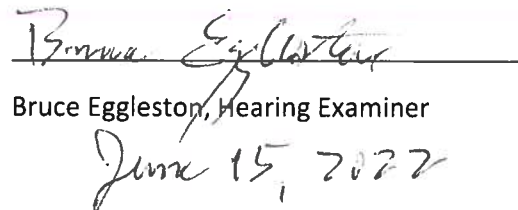 Bruce Eggleston
Bruce Eggleston, Hearing Examiner
June 15, 2022